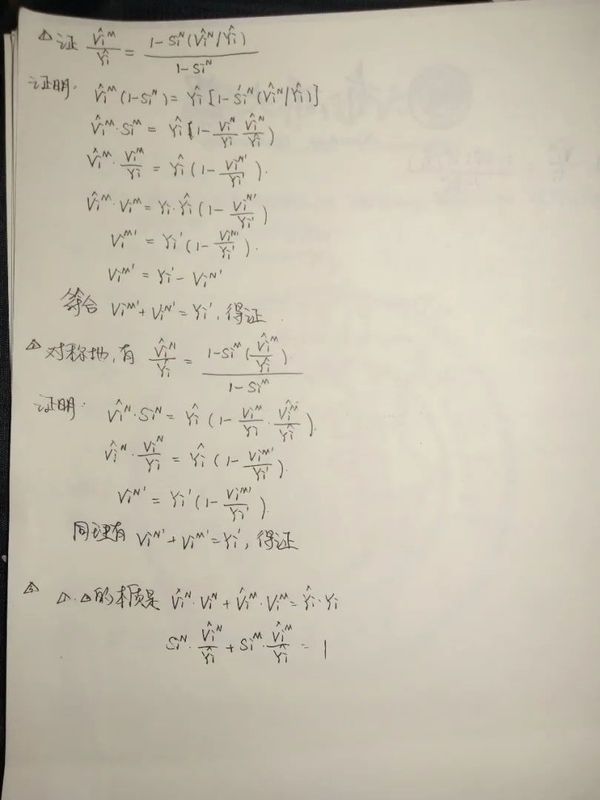 △证 V̂i^M/Ŷi = (1-Si^N(V̂i^N/Ŷi))/(1-Si^N)
证明: V̂i^M(1-Si^N) = Ŷi[1-Si^N(V̂i^N/Ŷi)]
V̂i^M·Si^M = Ŷi(1-Vi^N/Yi V̂i^N/Ŷi)
V̂i^M·Vi^M/Yi = Ŷi(1-Vi^N'/Yi').
V̂i^M·Vi^M = Yi·Ŷi(1-Vi^N'/Yi')
Vi^M' = Yi'(1-Vi^N'/Yi').
Vi^M' = Yi'-Vi^N'
符合 Vi^M'+Vi^N'=Yi', 得证.
△对称地,有 V̂i^N/Ŷi = (1-Si^M(V̂i^M/Ŷi))/(1-Si^M)
证明: V̂i^N·Si^N = Ŷi(1-Vi^M/Yi·V̂i^M/Ŷi).
V̂i^N·Vi^N/Yi = Ŷi(1-Vi^M'/Yi').
Vi^N' = Yi'(1-Vi^M'/Yi').
同理有 Vi^N'+Vi^M'=Yi', 得证
△ △.△的本质是 V̂i^N·Vi^N+V̂i^M·Vi^M=Ŷi·Yi
Si^N·V̂i^N/Ŷi+Si^M·V̂i^M/Ŷi=1